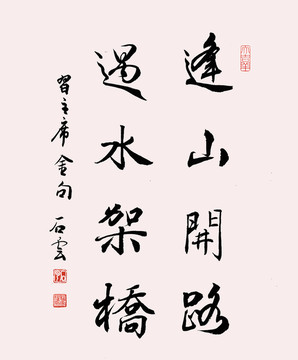 逢山開路
遇水架橋
習主席金句 石雲